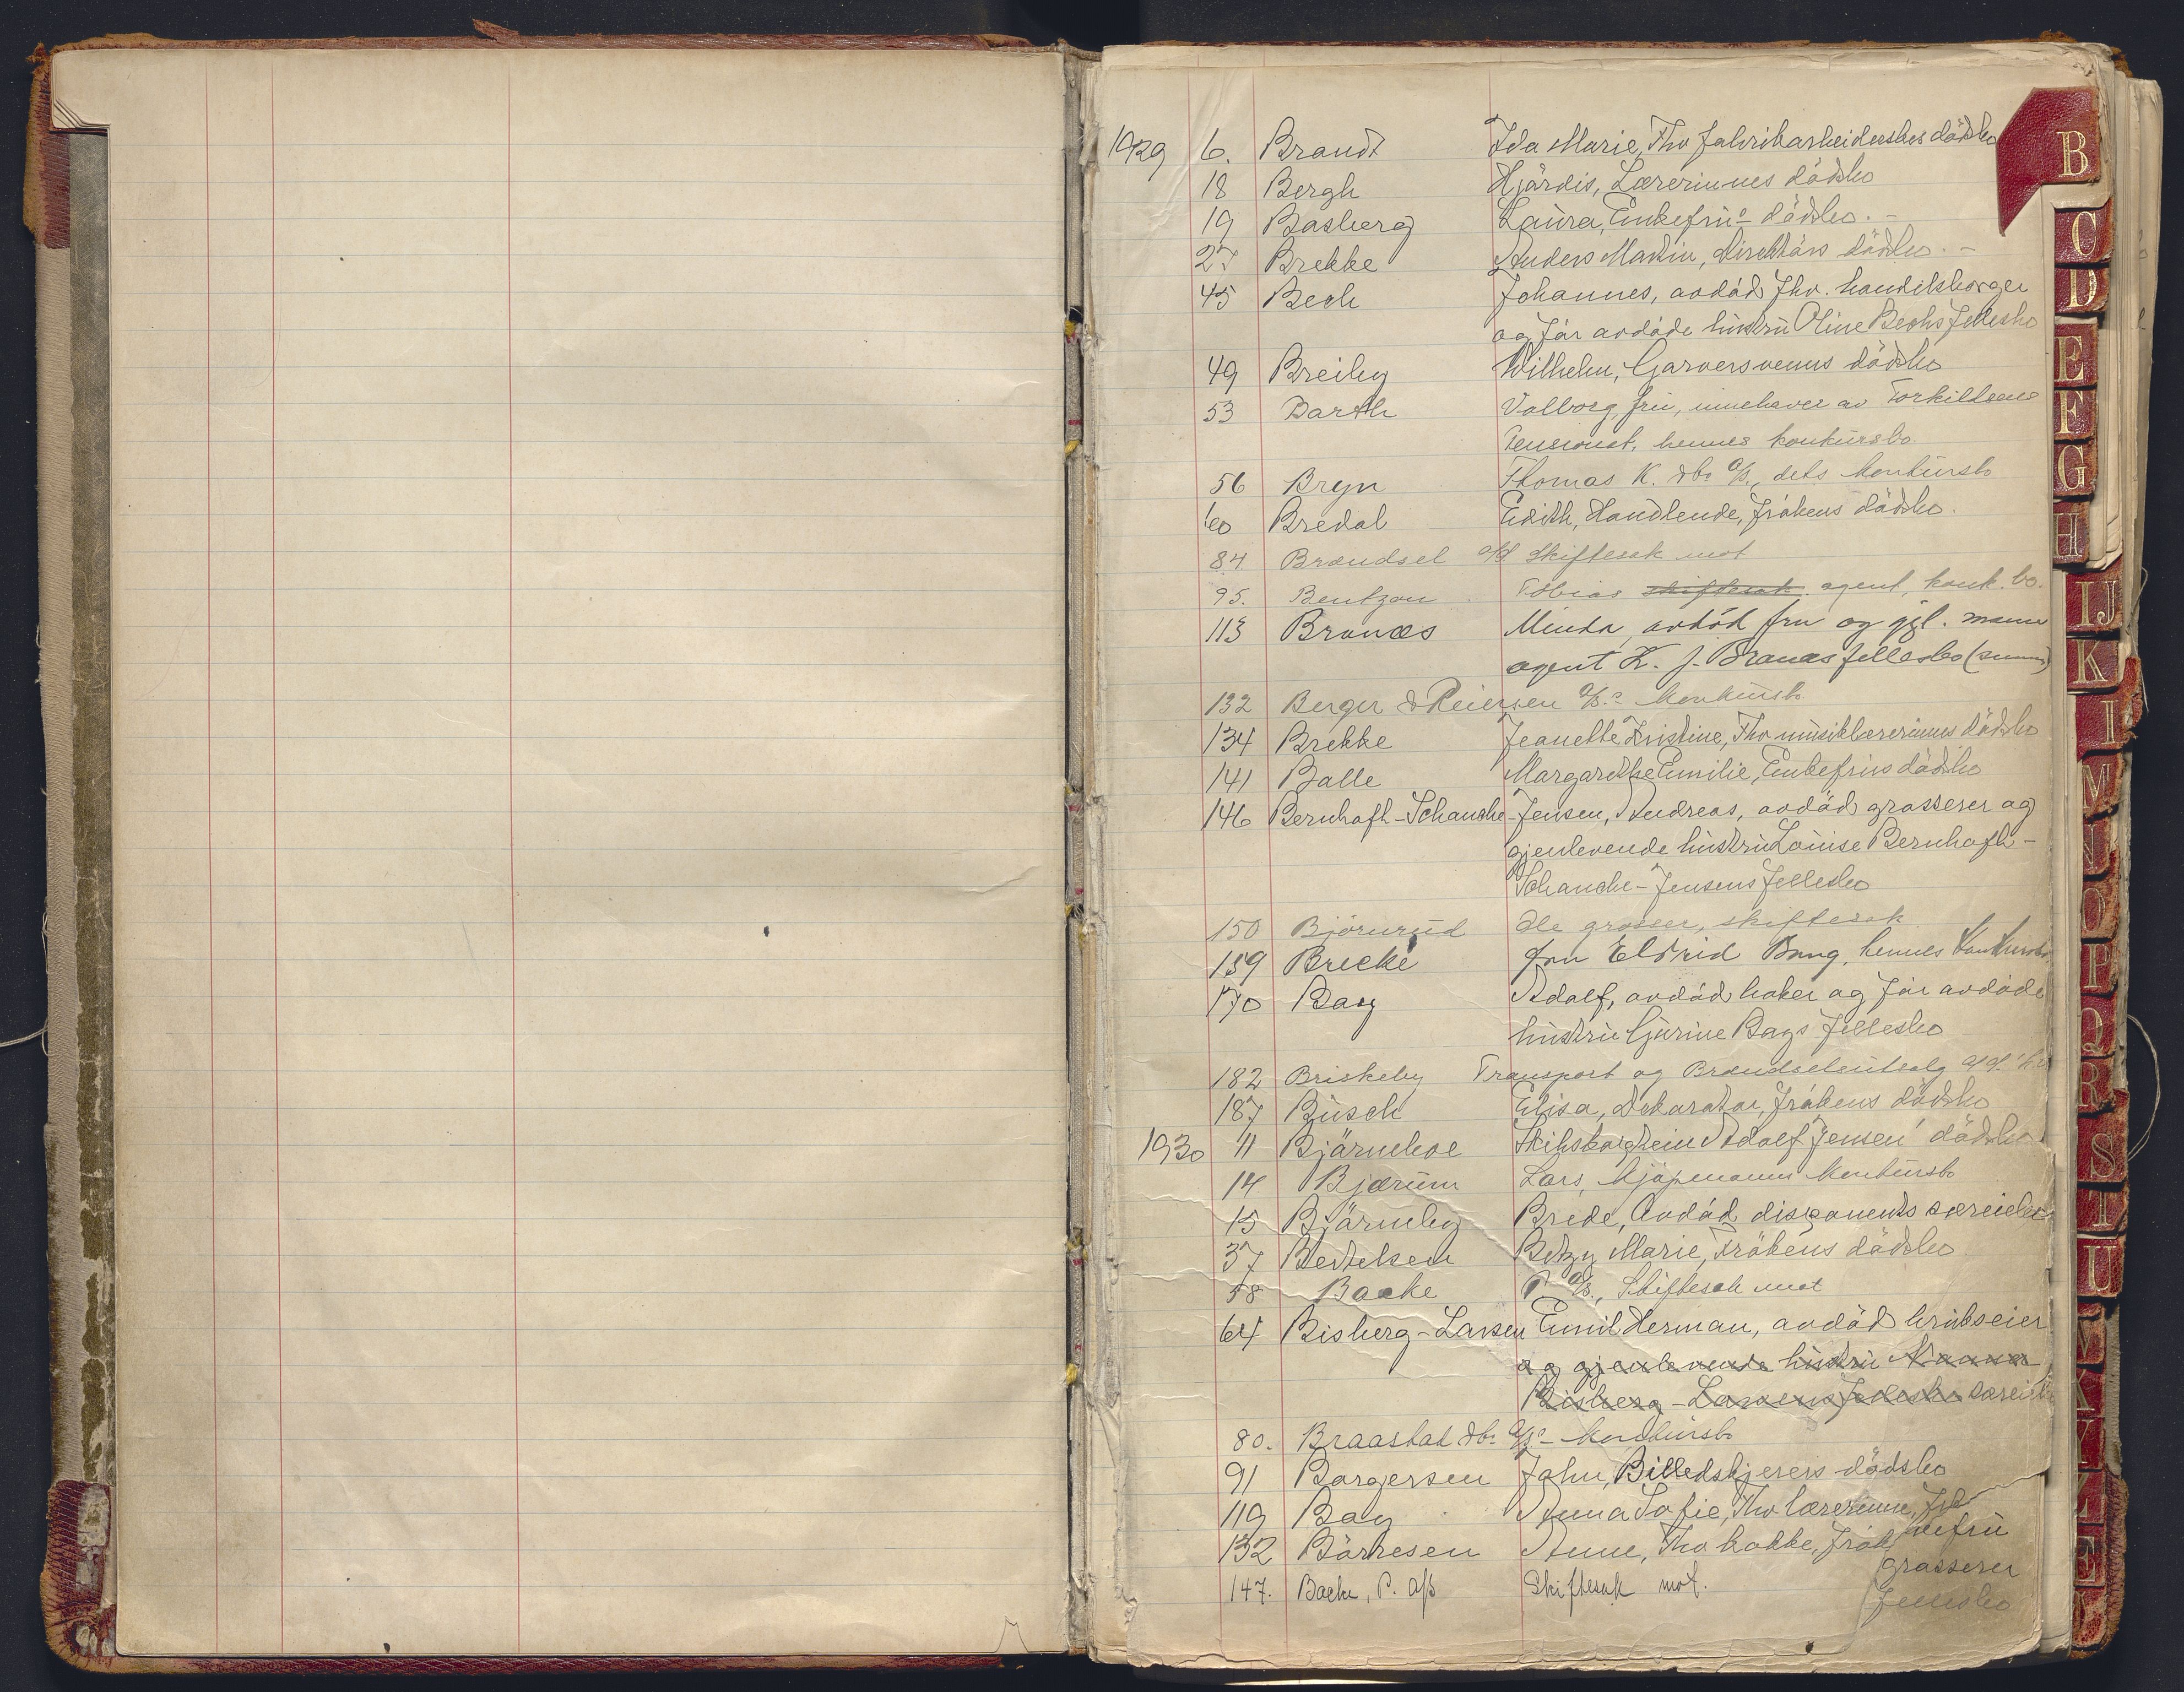 1929 6. Brandt Ida Marie, Fhv fabrikarbeiderskes dödsbo
18 Bergh Hjördis, Lærerinnes dödsbo
19 Basberg Laura, Enkefru's dödsbo. -
27 Brekke Anders Martin, direktörs dödsbo. -
45 Bech Johannes, avdöd fhv. handelsborger
og för avdöde hustru Oline Bechs fellesbo
49 Breiby Wilhelm, Garversvenns dödsbo
53 Barth Valborg fru, innehaver av Torkildsens
Pensionat, hennes konkursbo.
56 Bryn Thomas K. & Co A/S., dets konkursbo
60 Bredal Edith, Handlende, frökens dödsbo.
84. Brændsel A/S. Skiftesak mot
95. Bentzon Tobias skiftesak agent, konk. bo.
113 Branæs Minda, avdöd fru og gjl. mann
agent K. J. Branæs fellesbo
132 Berger & Reiersen A/S's konkursbo.
134 Brekke Jeanette Kristine, Fhv musiklærerinnes dödsbo
141 Balle Margarethe Emilie, Enkefrus dödsbo
146 Bernhoft-Schanche-Jensen, Andreas, avdöd grosserer og
gjenlevende hustru Louise Bernhoft-
Schanche-Jensens fellesbo
150 Björnrud Ole grosser, skiftesak
159 Brecke fru Eldrid Bang, hennes konkursbo
170 Bay Adolf, avdöd baker og för avdöde
hustru Gurine Bays fellesbo
182 Briskeby Transport og Brændselsutsalg A/S.
187 Busch Elisa, Dekoratör, frökens dödsbo
1930 11 Björneboe Adolf Jensen' dödsbo
14 Bjærum Lars, kjöpmanns konkursbo
15 Björneby Brede, Avdöd disponents særeiebo
37 Bertelsen Betzy Marie, Frökens dödsbo
58 Backe P. A/S., Skiftesak mot
64 Bisberg-Larsen Emil Herman, avdöd brukseier
og gjenlevende hustru Nanna
Bisberg-Larsens fellesbo særeiebo
80. Braastad & Co A/S's konkursbo
91 Borgersen John, Billedskjerers dödsbo
119 Bay Anna Sofie, Fhv lærerinne,
132 Börresen Anne, Fhv kokke, frök
147. Backe, P. A/S Skiftesak mot.
grosserer